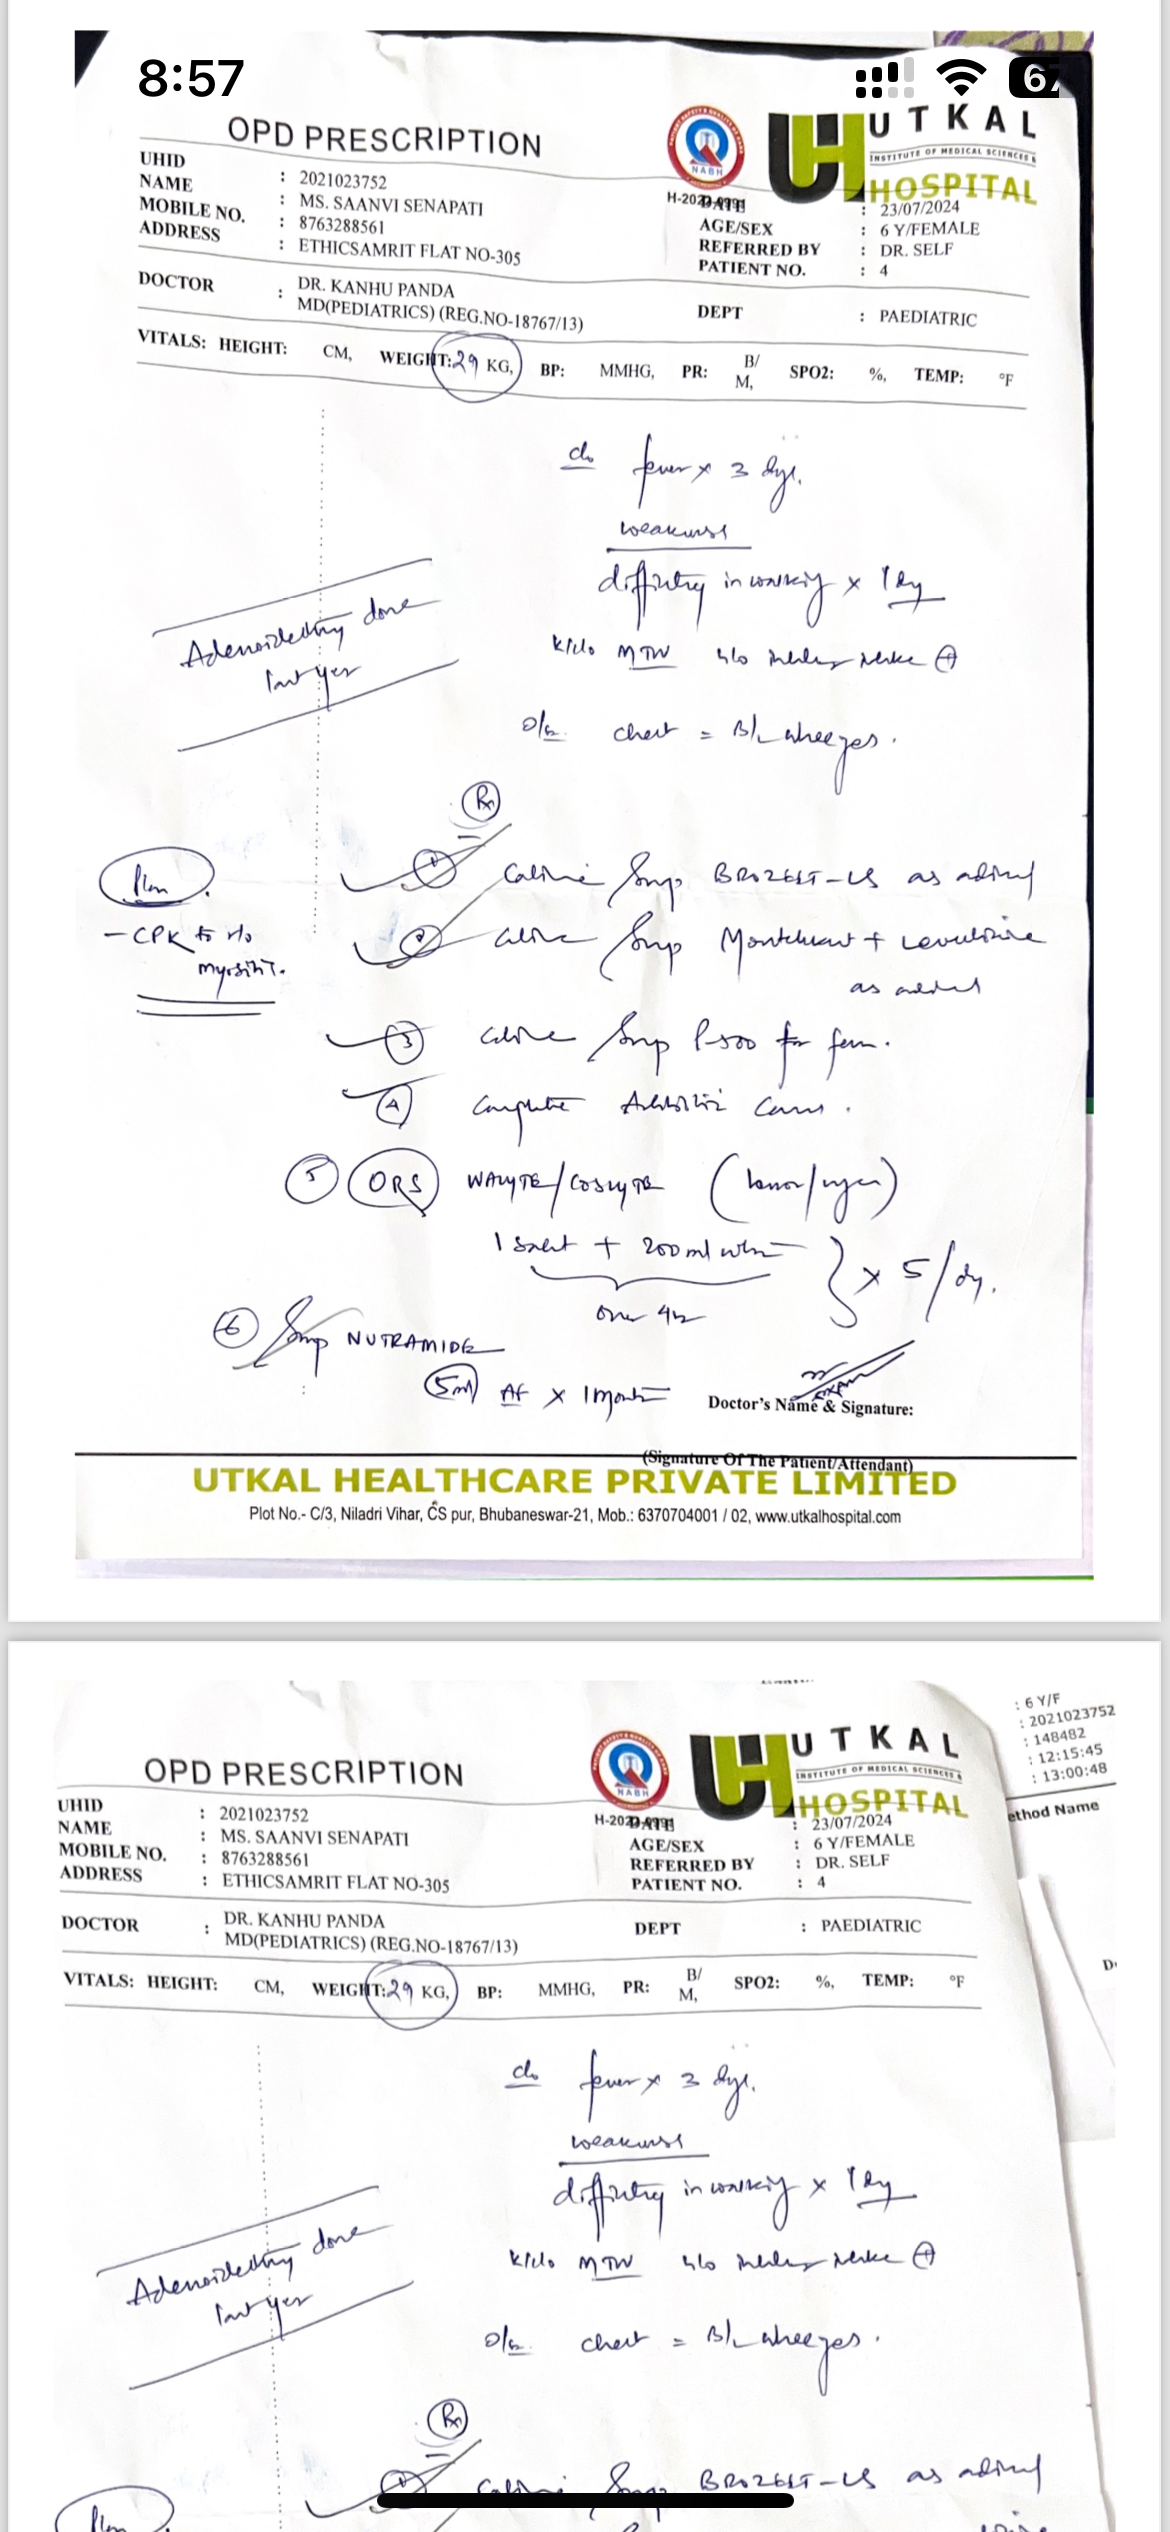 8:57
67
OPD PRESCRIPTION
NABH
UTKAL
INSTITUTE OF MEDICAL SCIENCES &
HOSPITAL
UHID : 2021023752
NAME : MS. SAANVI SENAPATI
MOBILE NO. : 8763288561
ADDRESS : ETHICSAMRIT FLAT NO-305
DATE : 23/07/2024
AGE/SEX : 6 Y/FEMALE
REFERRED BY : DR. SELF
PATIENT NO. : 4
DOCTOR : DR. KANHU PANDA
MD(PEDIATRICS) (REG.NO-18767/13)
DEPT : PAEDIATRIC
VITALS: HEIGHT: CM, WEIGHT:29 KG, BP: MMHG, PR: B/M, SPO2: %, TEMP: °F
c/o fever x 3 dys.
weakness
difficulty in walking x 1 day
Adenoidectomy done
last year
k/c/o
o/e chest = B/L wheezes.
Rx
Plan.
- CPK to r/o
myositis.
1 Syrup as advised
2 Syrup + 
as advised
3 Syrup P-500 for fever.
4 Complete Antibiotic
5 ORS WALYTE/COSLYTE
1 + 200 ml water } x 5/dy.
over 4h
6 Syrup NUTRAMIDE
5ml x 1 month
Doctor's Name & Signature:
(Signature Of The Patient/Attendant)
UTKAL HEALTHCARE PRIVATE LIMITED
Plot No.- C/3, Niladri Vihar, CS pur, Bhubaneswar-21, Mob.: 6370704001 / 02, www.utkalhospital.com
: 6 Y/F
: 2021023752
: 148482
: 12:15:45
: 13:00:48
ethod Name
OPD PRESCRIPTION
NABH
UTKAL
INSTITUTE OF MEDICAL SCIENCES &
HOSPITAL
UHID : 2021023752
NAME : MS. SAANVI SENAPATI
MOBILE NO. : 8763288561
ADDRESS : ETHICSAMRIT FLAT NO-305
DATE : 23/07/2024
AGE/SEX : 6 Y/FEMALE
REFERRED BY : DR. SELF
PATIENT NO. : 4
DOCTOR : DR. KANHU PANDA
MD(PEDIATRICS) (REG.NO-18767/13)
DEPT : PAEDIATRIC
VITALS: HEIGHT: CM, WEIGHT:29 KG, BP: MMHG, PR: B/M, SPO2: %, TEMP: °F
c/o fever x 3 dys.
weakness
difficulty in walking x 1 day
Adenoidectomy done
last year
k/c/o
o/e chest = B/L wheezes.
Rx
1 as advised
Plan